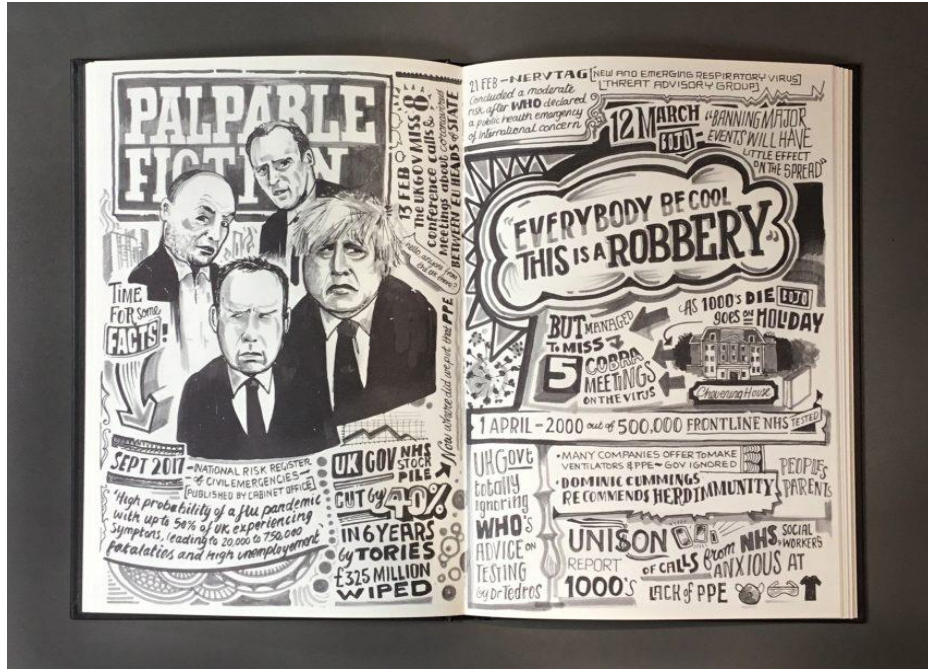 PALPABLE
FICTION
13 FEB - THE UK GOV MISS 8
conference calls &
Meetings about coronavirus
BETWEEN EU HEADS of STATE
hello, anyone from
the UK there?
Now where did we put that PPE
TIME
FOR some
FACTS!
SEPT 2017 - NATIONAL RISK REGISTER
of CIVIL EMERGENCIES -
[PUBLISHED BY CABINET OFFICE]
"High probability of a flu pandemic
with up to 50% of UK experiencing
symptoms, leading to 20,000 to 750,000
fatalities and high unemployement"
UK GOV NHS
STOCK
PILE
CUT by 40%
IN 6 YEARS
by TORIES
£325 MILLION
WIPED
21 FEB - NERVTAG [NEW AND EMERGING RESPIRATORY VIRUS]
[THREAT ADVISORY GROUP]
Concluded a moderate
risk after WHO declared
a public health emergency
of international concern
12 MARCH
BOJO - "BANNING MAJOR
EVENTS WILL HAVE
LITTLE EFFECT
ON THE SPREAD"
"EVERYBODY BE COOL
THIS IS A ROBBERY"
BUT MANAGED
TO MISS
5 COBRA
MEETINGS
ON THE VIRUS
AS 1000's DIE BOJO
goes on HOLIDAY
Chevening House
1 APRIL - 2000 out of 500,000 FRONTLINE NHS TESTED
UK Govt
totally
ignoring
WHO's
ADVICE on
TESTING
by Dr Tedros
• MANY COMPANIES OFFER TO MAKE
VENTILATORS & PPE - GOV IGNORED
• DOMINIC CUMMINGS
RECOMMENDS HERD IMMUNITY
PEOPLE'S
PARENTS
UNISON
REPORT
1000's
OF CALLS from NHS SOCIAL
WORKERS
ANXIOUS AT
LACK of PPE